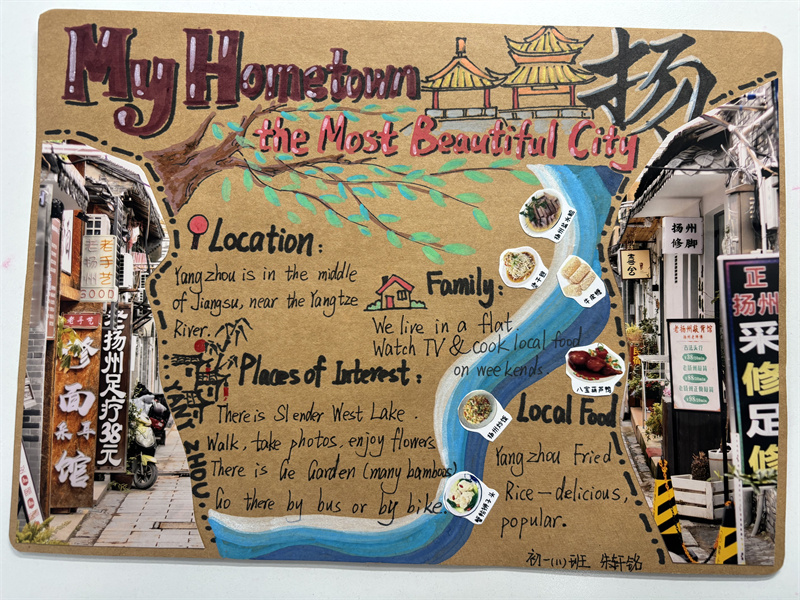 My Hometown
扬
the Most Beautiful City
Location:
Yangzhou is in the middle
of Jiangsu, near the Yangtze
River.
Family:
We live in a flat.
Watch TV & cook local food
on weekends.
Places of Interest:
There is Slender West Lake
Walk, take photos, enjoy flowers
There is Ge Garden (many bamboos)
Go there by bus or by bike.
YANG ZHOU
Local Food
Yangzhou Fried
Rice—delicious,
popular.
初一(11)班 朱轩铭
八宝葫芦鸭
扬州炒饭
老手艺
老扬州
老扬州足疗38元
面馆
扬州
修脚
正
扬州
采
修
足
修